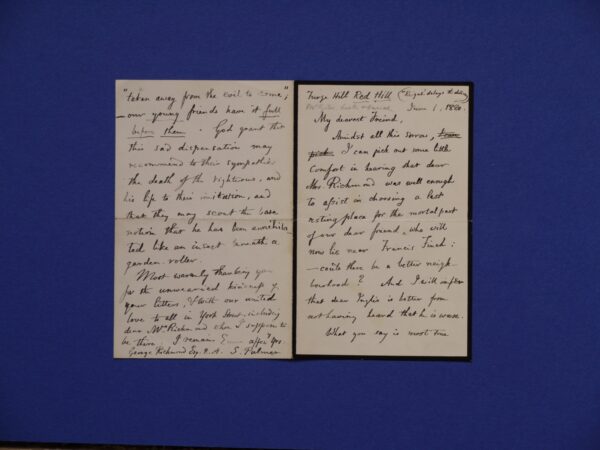 Furze Hill Red Hill
June 1. 1880.
My dearest Friend,
Amidst all this sorrow,
I can pick out some little
comfort in hearing that dear
Mrs. Richmond was well enough
to assist in choosing a last
resting place for the mortal part
of our dear friend, who will
now lie near Francis Finch:
—could there be a better neigh-
bourhood? And I will infer
that dear Inglis is better from
not having heard that he is worse.
What you say is most true.
"taken away from the evil to come;"
—our young friends have it full
before them. God grant that
this sad dispensation may
recommend to their sympathies
the death of the righteous, and
his life to their imitation, and
that they may scout the base
notion that he has been annihila-
ted like an insect beneath a
garden-roller.
Most warmly thanking you
for the unwearied kindness of
your letters, & with our united
love to all in York Street, including
dear Mrs Richmond who I suppose to
be there. I remain Ever affecly yrs.
George Richmond Esq. R.A. S. Palmer